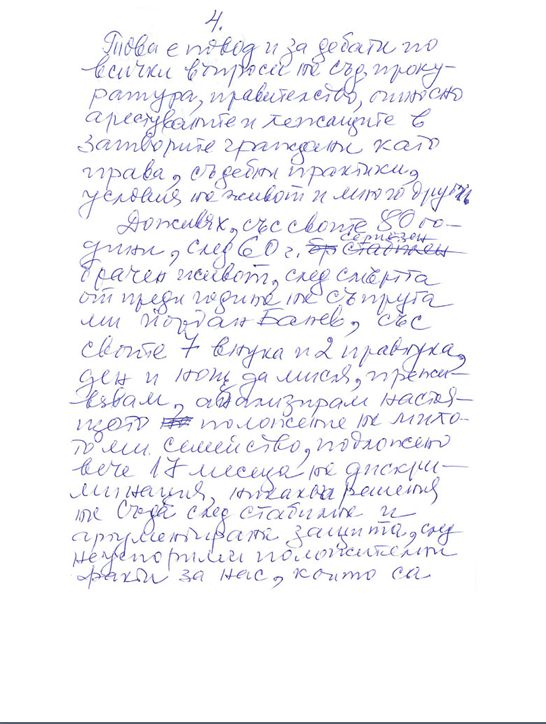 4.
Това е повод и за дебати по
всички въпроси на съд, проку-
ратура, правителство, относно
арестуваните и лежащите в
затворите граждани като
права, съдебни практики,
условия на живот и много други
Доживях, със своите 80 го-
дини, след 60 г. сериозен
брачен живот, след смъртта
от преди година на съпруга
ми Йордан Банев, със
своите 7 внука и 2 правнука,
ден и нощ да мисля, прежи-
вявам, анализирам настоя-
щото положение на мило-
то ми семейство, подложено
вече 17 месеца на дискри-
минация, никакви решения
на Съда след стабилна и
аргументирана защита, след
неуспорими положителни
факти за нас, които са